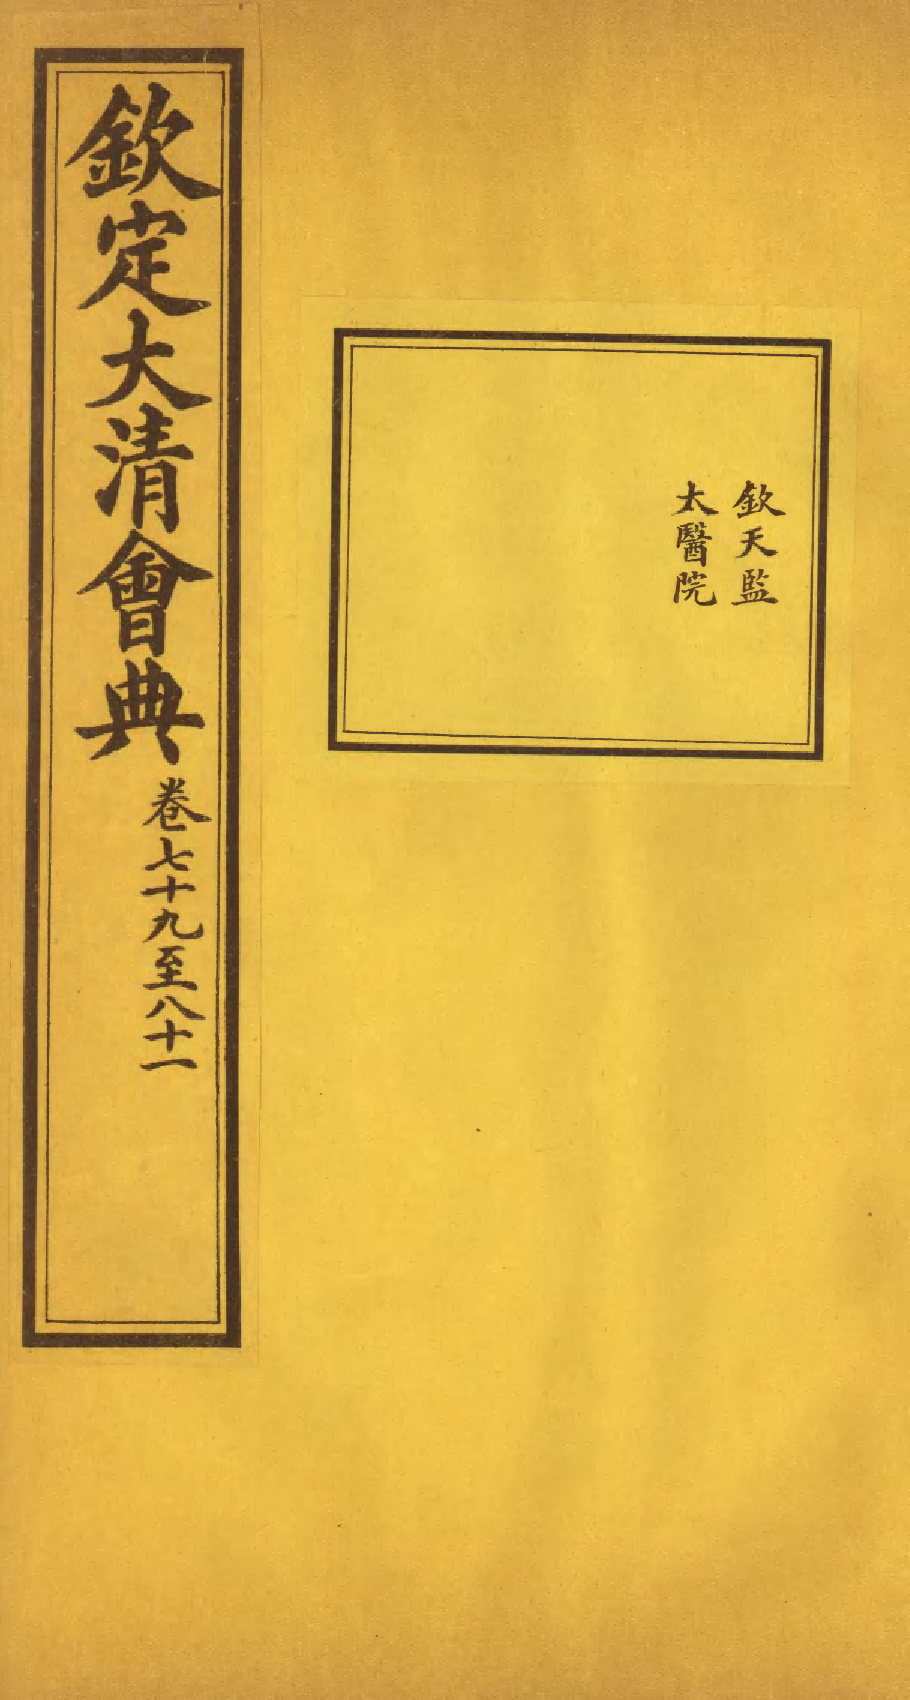 欽天監
太醫院
欽定大清會典卷七十九至八十一